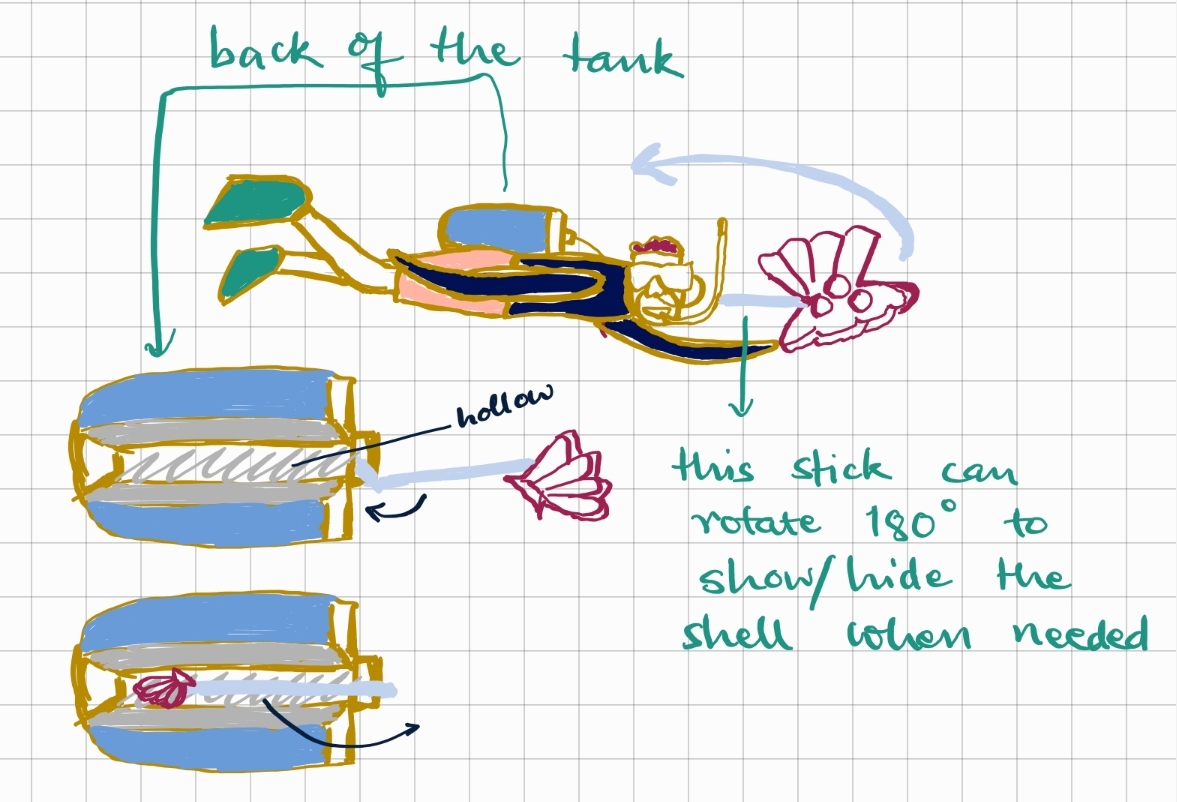 back of the tank
hollow
this stick can
rotate 180° to
show/hide the
shell when needed